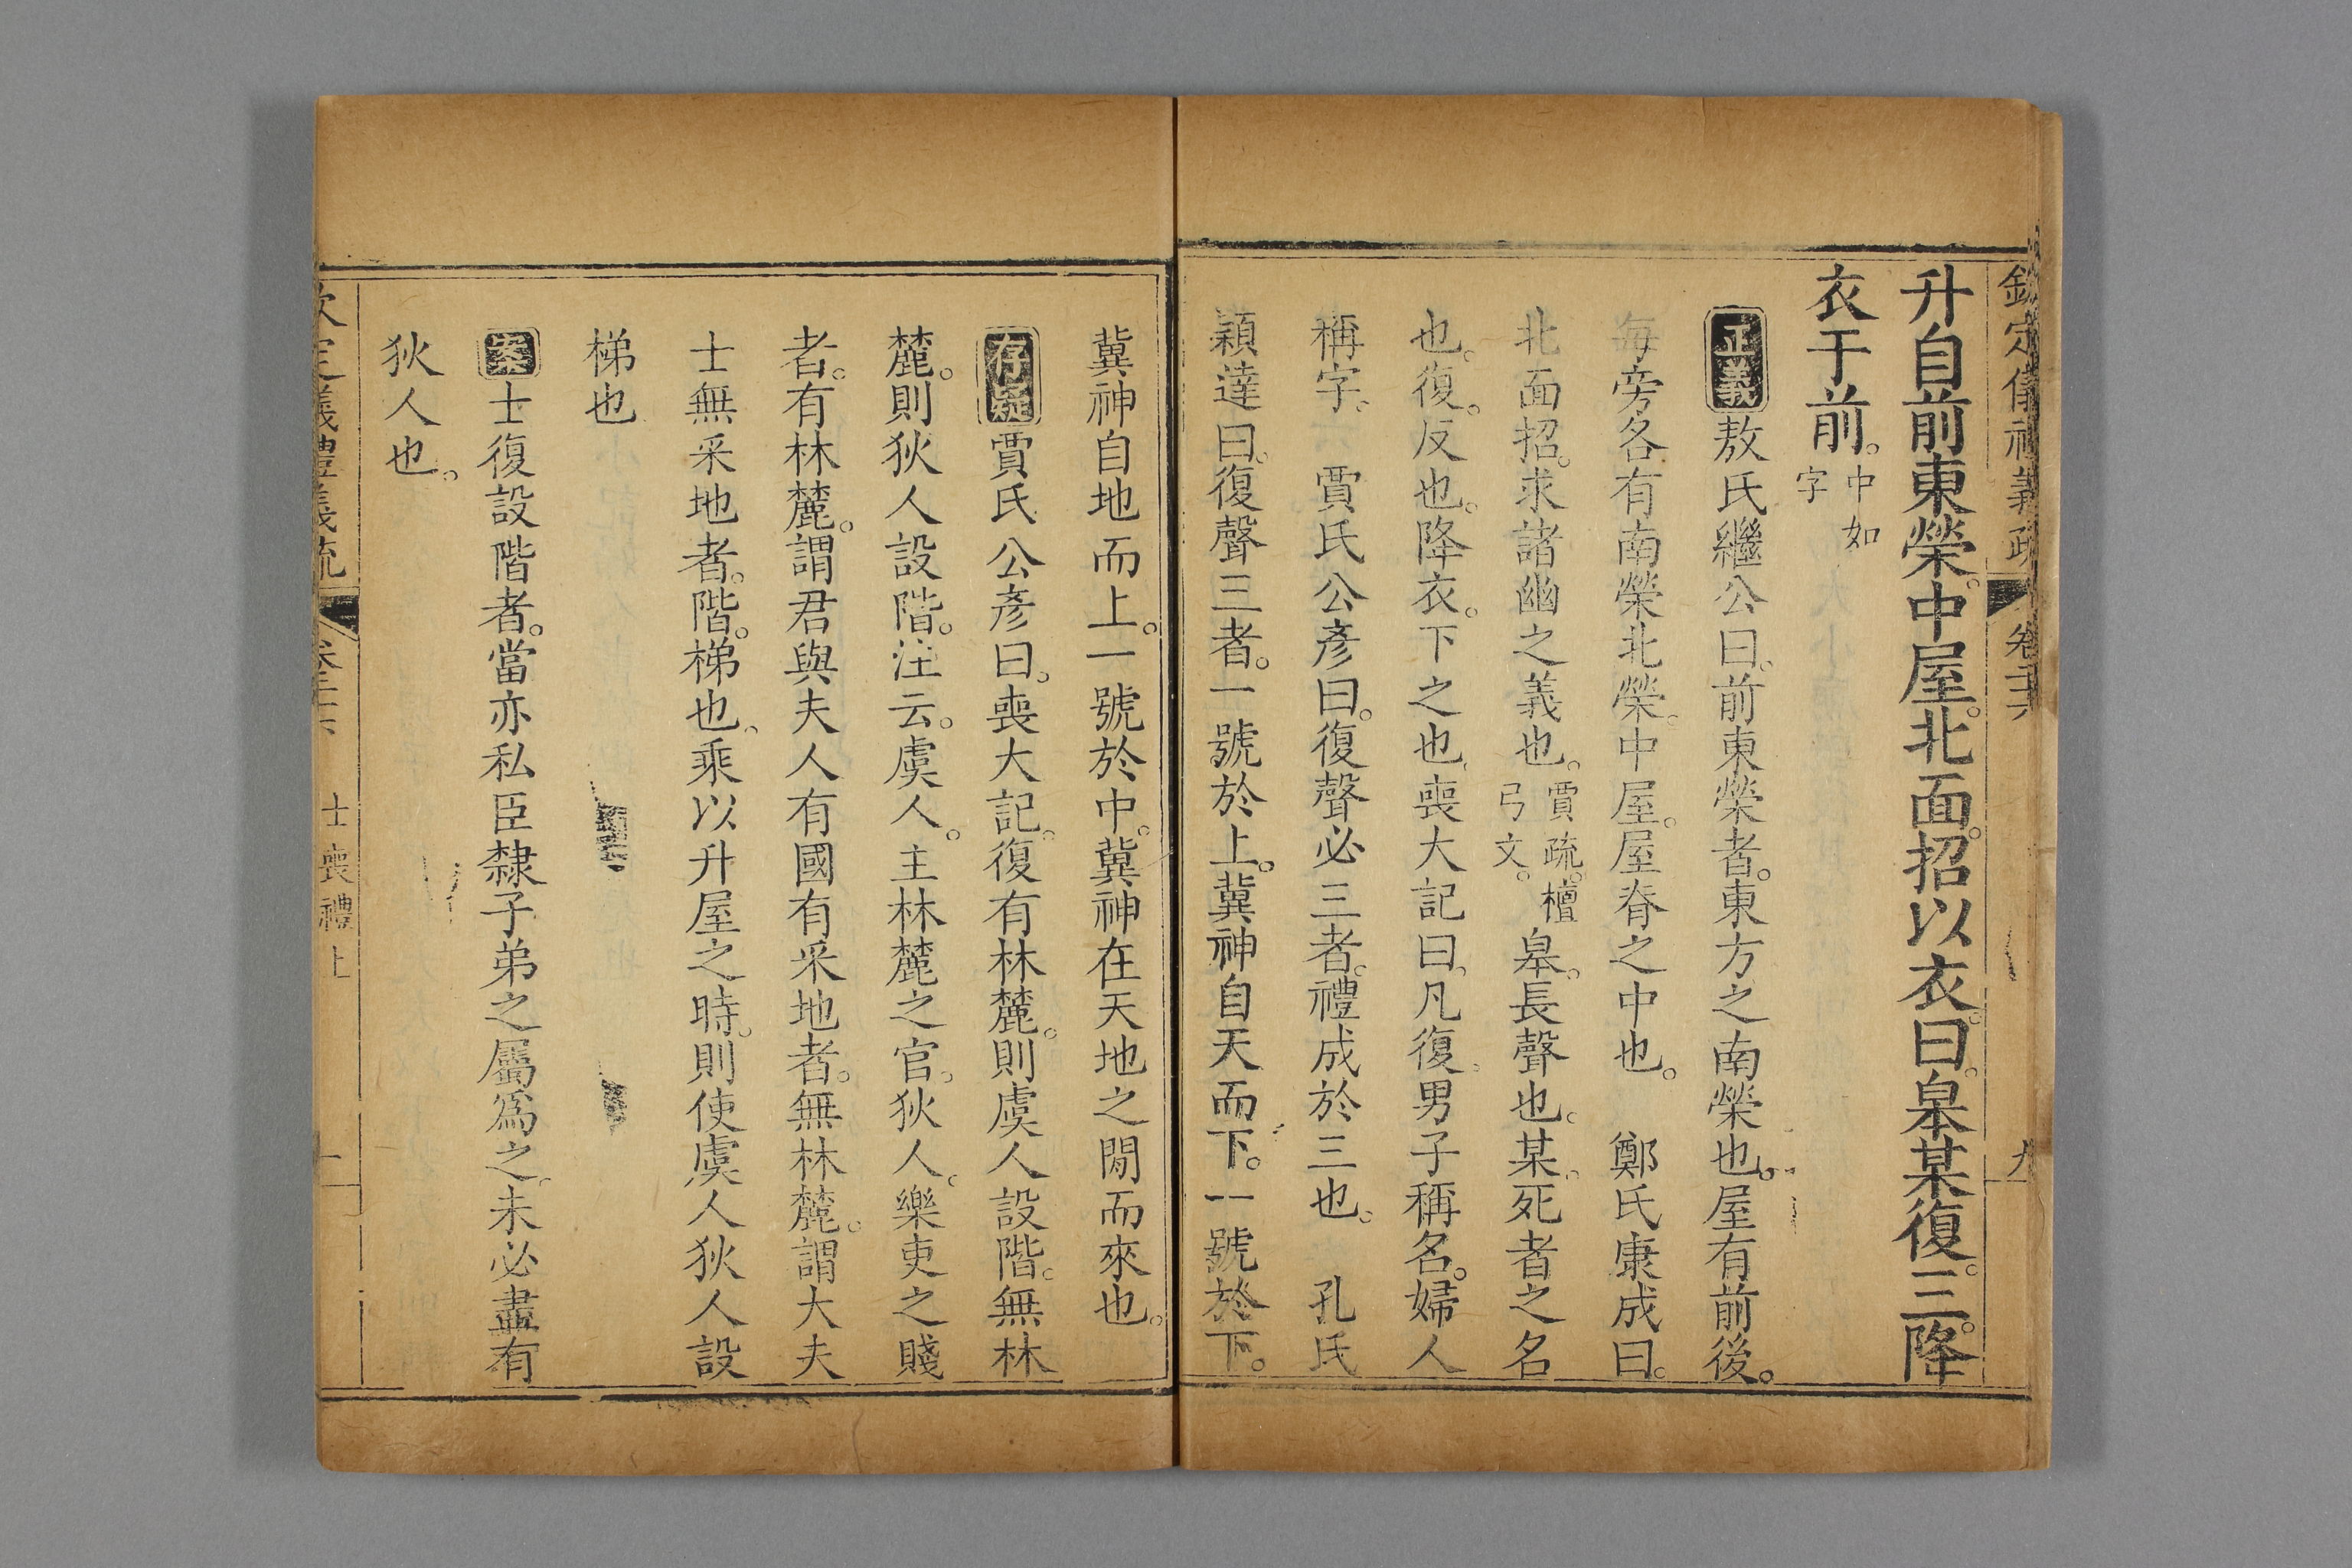 欽定儀禮義疏 卷二十六 九
升自前東榮。中屋。北面。招以衣。曰。皋某復。三。降
衣于前。中如字
正義敖氏繼公曰。前東榮者。東方之南榮也。屋有前後。
每旁各有南榮北榮。中屋。屋脊之中也。 鄭氏康成曰。
北面招。求諸幽之義也。賈疏。檀弓文。皋。長聲也。某。死者之名
也。復。反也。降衣。下之也。喪大記曰。凡復。男子稱名。婦人
稱字。 賈氏公彥曰。復聲必三者。禮成於三也。 孔氏
穎達曰。復聲三者。一號於上。冀神自天而下。一號於下。
冀神自地而上。一號於中。冀神在天地之閒而來也。
存疑賈氏公彥曰。喪大記。復有林麓。則虞人設階。無林
麓。則狄人設階。注云。虞人。主林麓之官。狄人。樂吏之賤
者。有林麓。謂君與夫人有國有采地者。無林麓。謂大夫
士無采地者。階。梯也。乘以升屋之時。則使虞人狄人設
梯也
案士復設階者。當亦私臣隸子弟之屬爲之。未必盡有
狄人也。
欽定義禮義疏 卷二十六 士喪禮上